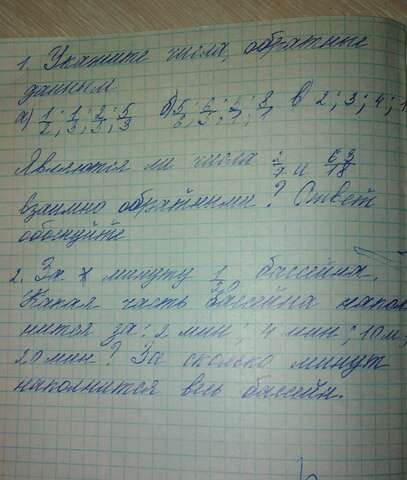 1. Укажите числа, обратные
данным
а) 1/2; 1/3; 2/3; 5/3 б) 5/6; 6/5; 8/7 в 2; 3; 4; 1
Являются ли числа и 63/18
взаимно обратными? Ответ
обоснуйте
2. За минуту бассейна.
Какая часть бассейна напол
нится за: 2 мин; 4 мин; 10 м,
20 мин? За сколько минут
наполнится весь бассейн.